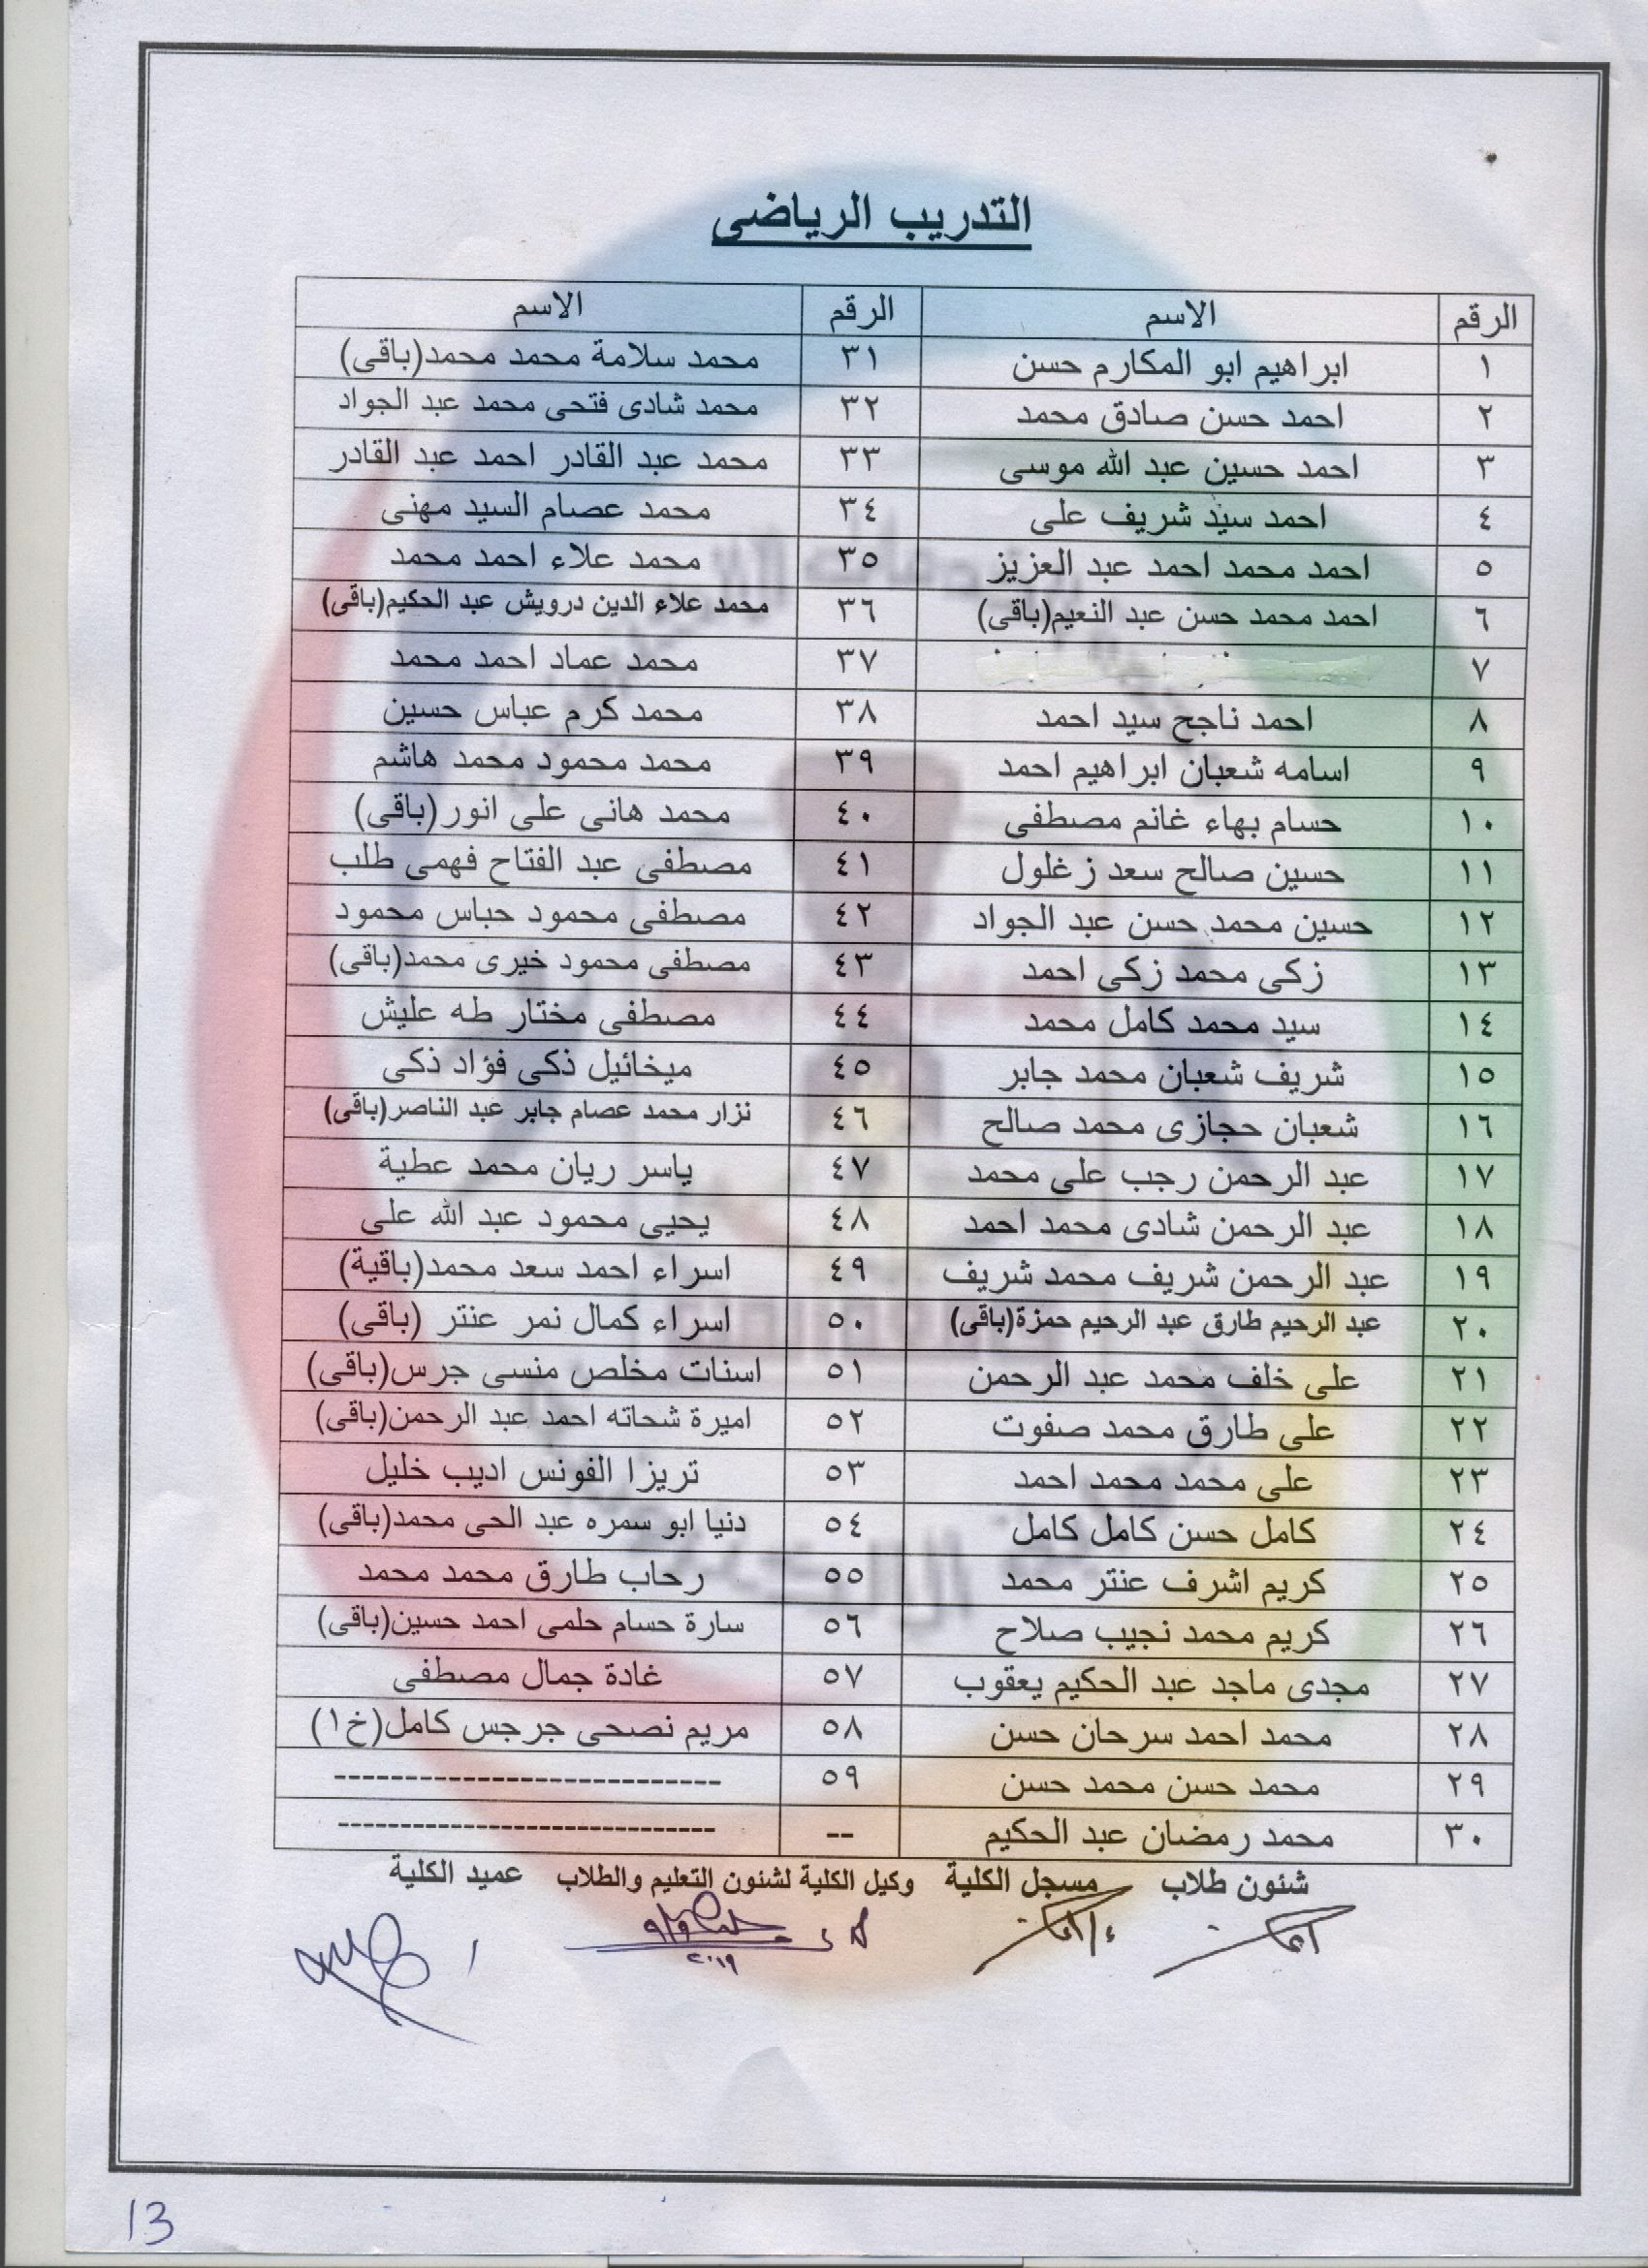 التدريب الرياضى
الرقم الاسم الرقم الاسم
١ ابراهيم ابو المكارم حسن ٣١ محمد سلامة محمد محمد(باقى)
٢ احمد حسن صادق محمد ٣٢ محمد شادى فتحى محمد عبد الجواد
٣ احمد حسين عبد الله موسى ٣٣ محمد عبد القادر احمد عبد القادر
٤ احمد سيد شريف على ٣٤ محمد عصام السيد مهنى
٥ احمد محمد احمد عبد العزيز ٣٥ محمد علاء احمد محمد
٦ احمد محمد حسن عبد النعيم(باقى) ٣٦ محمد علاء الدين درويش عبد الحكيم(باقى)
٧ ٣٧ محمد عماد احمد محمد
٨ احمد ناجح سيد احمد ٣٨ محمد كرم عباس حسين
٩ اسامه شعبان ابراهيم احمد ٣٩ محمد محمود محمد هاشم
١٠ حسام بهاء غانم مصطفى ٤٠ محمد هانى على انور(باقى)
١١ حسين صالح سعد زغلول ٤١ مصطفى عبد الفتاح فهمى طلب
١٢ حسين محمد حسن عبد الجواد ٤٢ مصطفى محمود حباس محمود
١٣ زكى محمد زكى احمد ٤٣ مصطفى محمود خيرى محمد(باقى)
١٤ سيد محمد كامل محمد ٤٤ مصطفى مختار طه عليش
١٥ شريف شعبان محمد جابر ٤٥ ميخائيل ذكى فؤاد ذكى
١٦ شعبان حجازى محمد صالح ٤٦ نزار محمد عصام جابر عبد الناصر(باقى)
١٧ عبد الرحمن رجب على محمد ٤٧ ياسر ريان محمد عطية
١٨ عبد الرحمن شادى محمد احمد ٤٨ يحيى محمود عبد الله على
١٩ عبد الرحمن شريف محمد شريف ٤٩ اسراء احمد سعد محمد(باقية)
٢٠ عبد الرحيم طارق عبد الرحيم حمزة(باقى) ٥٠ اسراء كمال نمر عنتر (باقى)
٢١ على خلف محمد عبد الرحمن ٥١ اسنات مخلص منسى جرس(باقى)
٢٢ على طارق محمد صفوت ٥٢ اميرة شحاته احمد عبد الرحمن(باقى)
٢٣ على محمد محمد احمد ٥٣ تريزا الفونس اديب خليل
٢٤ كامل حسن كامل كامل ٥٤ دنيا ابو سمره عبد الحى محمد(باقى)
٢٥ كريم اشرف عنتر محمد ٥٥ رحاب طارق محمد محمد
٢٦ كريم محمد نجيب صلاح ٥٦ سارة حسام حلمى احمد حسين(باقى)
٢٧ مجدى ماجد عبد الحكيم يعقوب ٥٧ غادة جمال مصطفى
٢٨ محمد احمد سرحان حسن ٥٨ مريم نصحى جرجس كامل(خ١)
٢٩ محمد حسن محمد حسن ٥٩ ---------------------------
٣٠ محمد رمضان عبد الحكيم -- ---------------------------
شئون طلاب مسجل الكلية وكيل الكلية لشئون التعليم والطلاب عميد الكلية
٢٠١٩
13